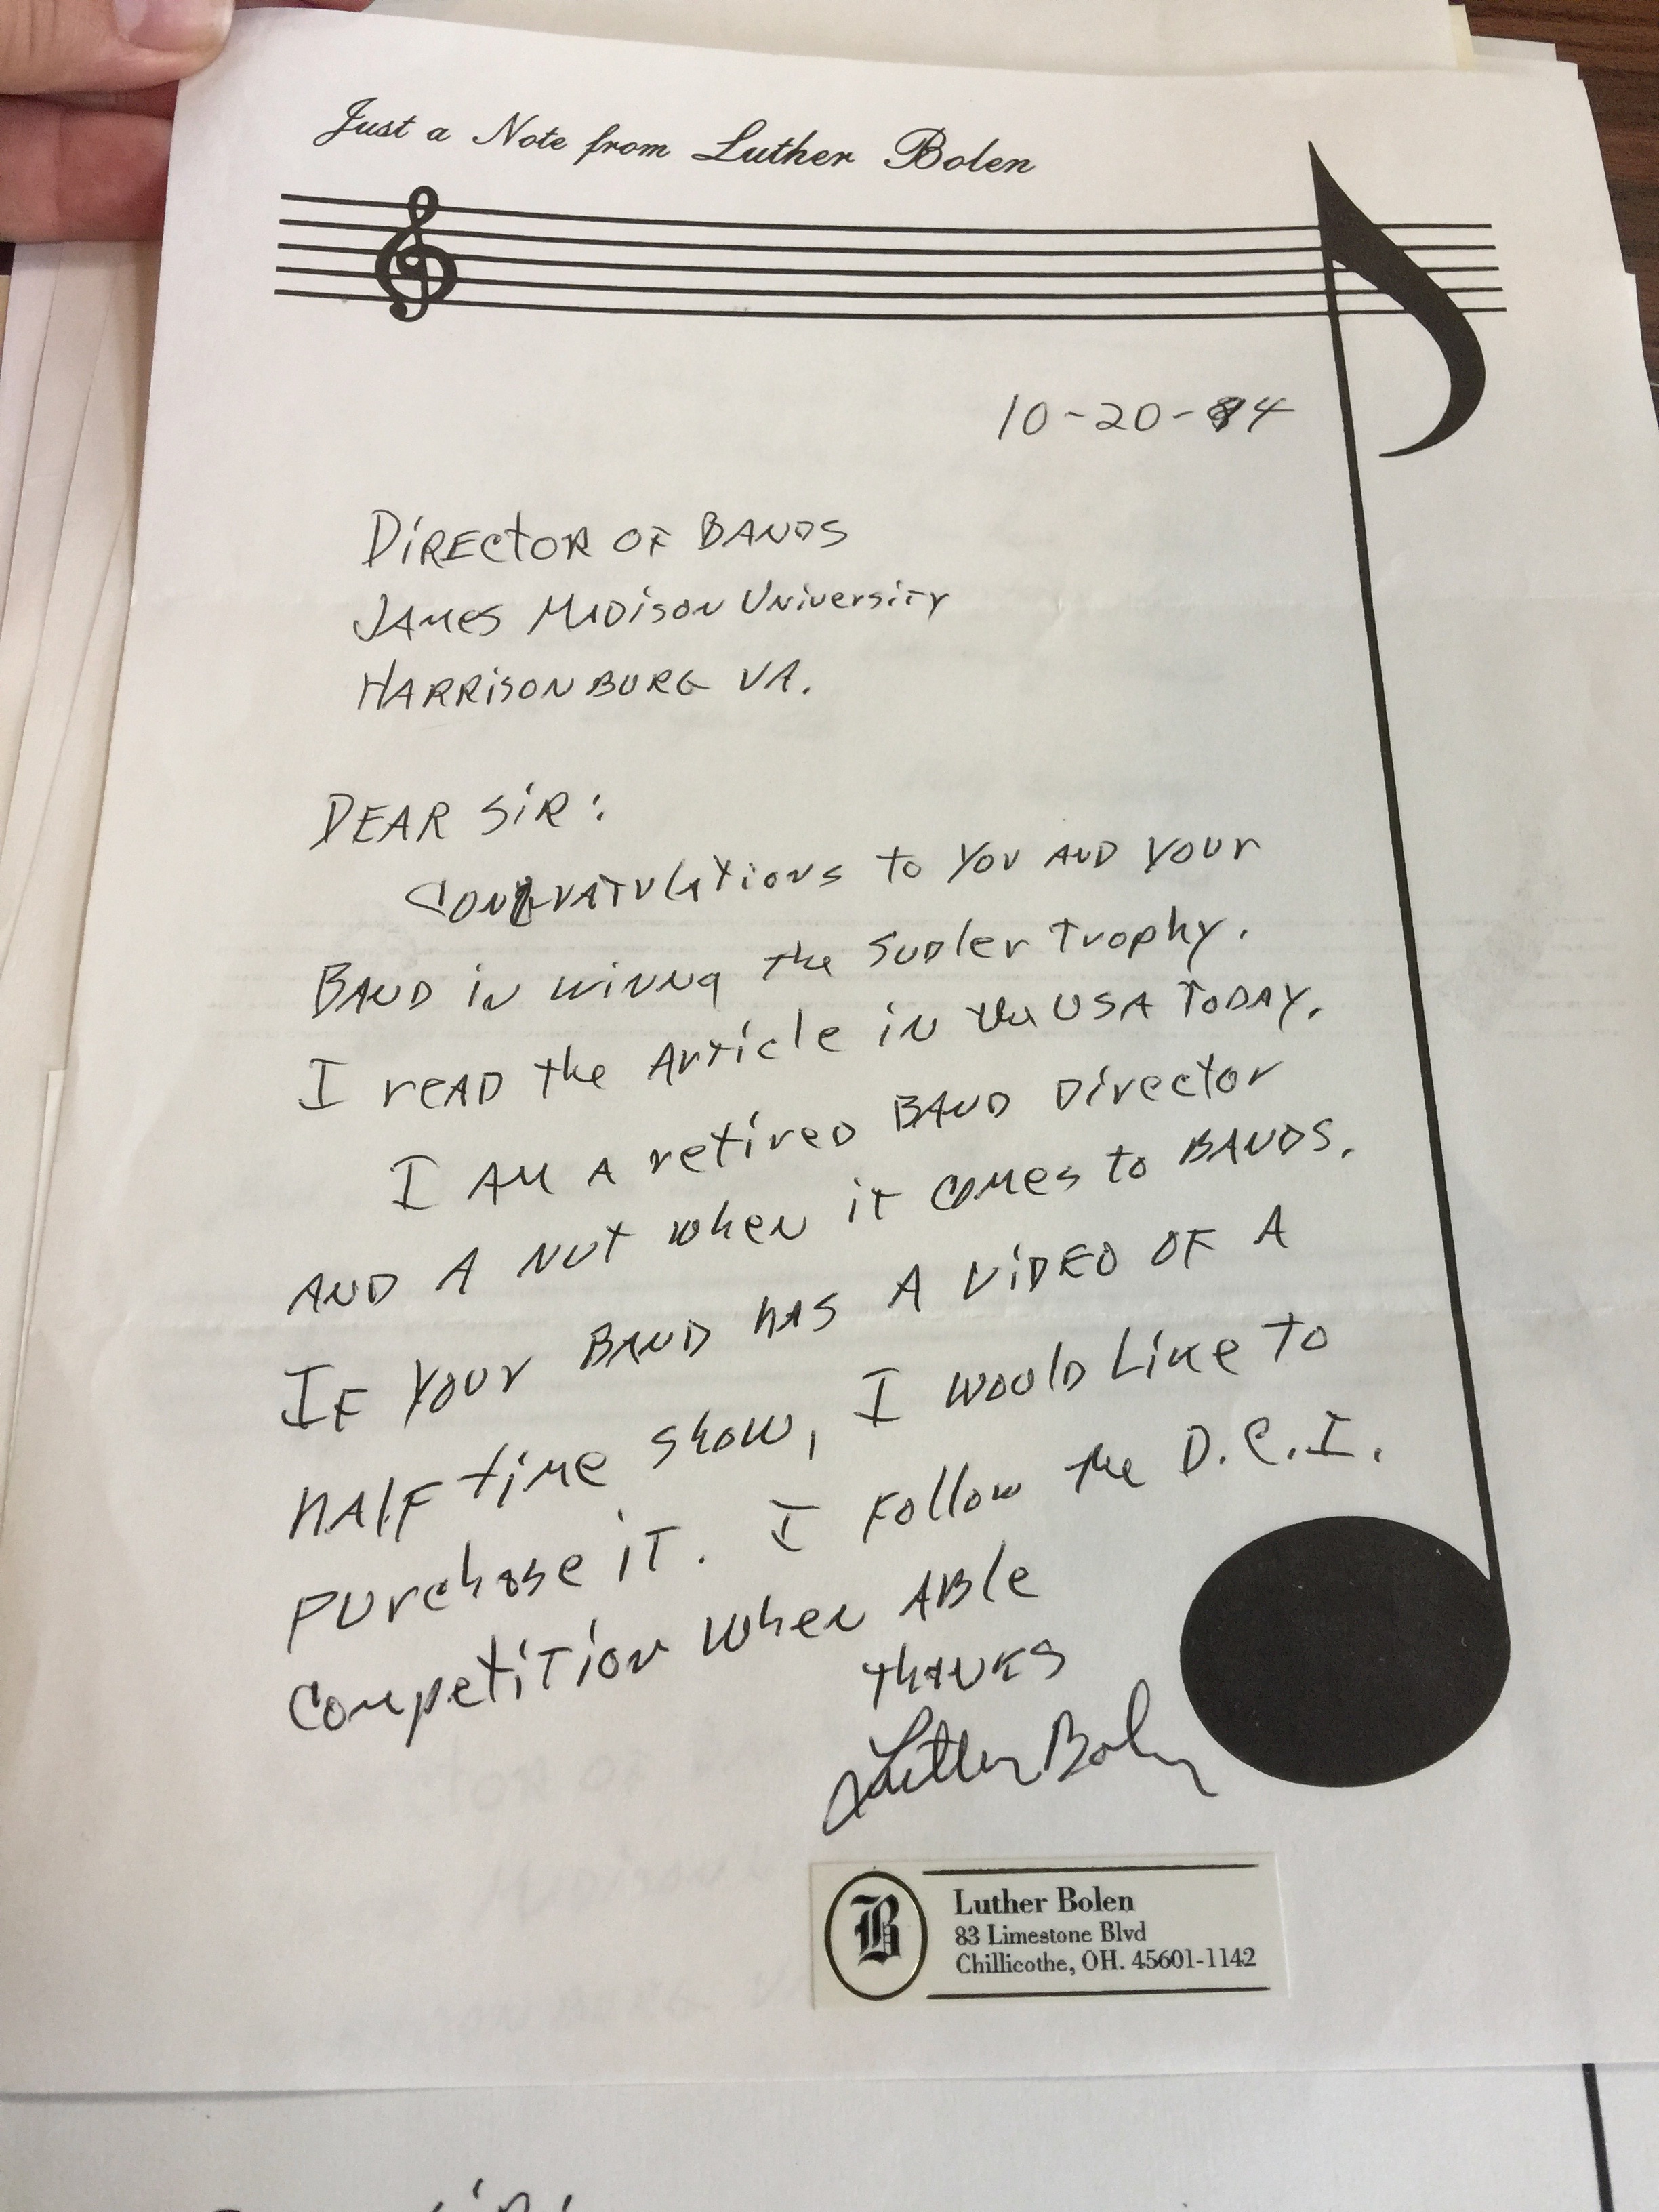 Just a Note from Luther Bolen
10-20-94
DiRECtOR OF BANDS
JAMES MADISON University
HARRISONBURG VA.
DEAR SiR:
CONGratulAtions to You AND Your
BAND in winng the Sudler trophy.
I reAD the Article in the USA TODAY.
I AM A retired BAND Director
AND A NUt when it comes to BANDS.
IF Your BAND hAS A ViDEO OF A
hAlF time show, I would Like to
purchase it. I Follow the D.C.I.
Competition when ABle
thANKS
Luther Bolen
B
Luther Bolen
83 Limestone Blvd
Chillicothe, OH. 45601-1142